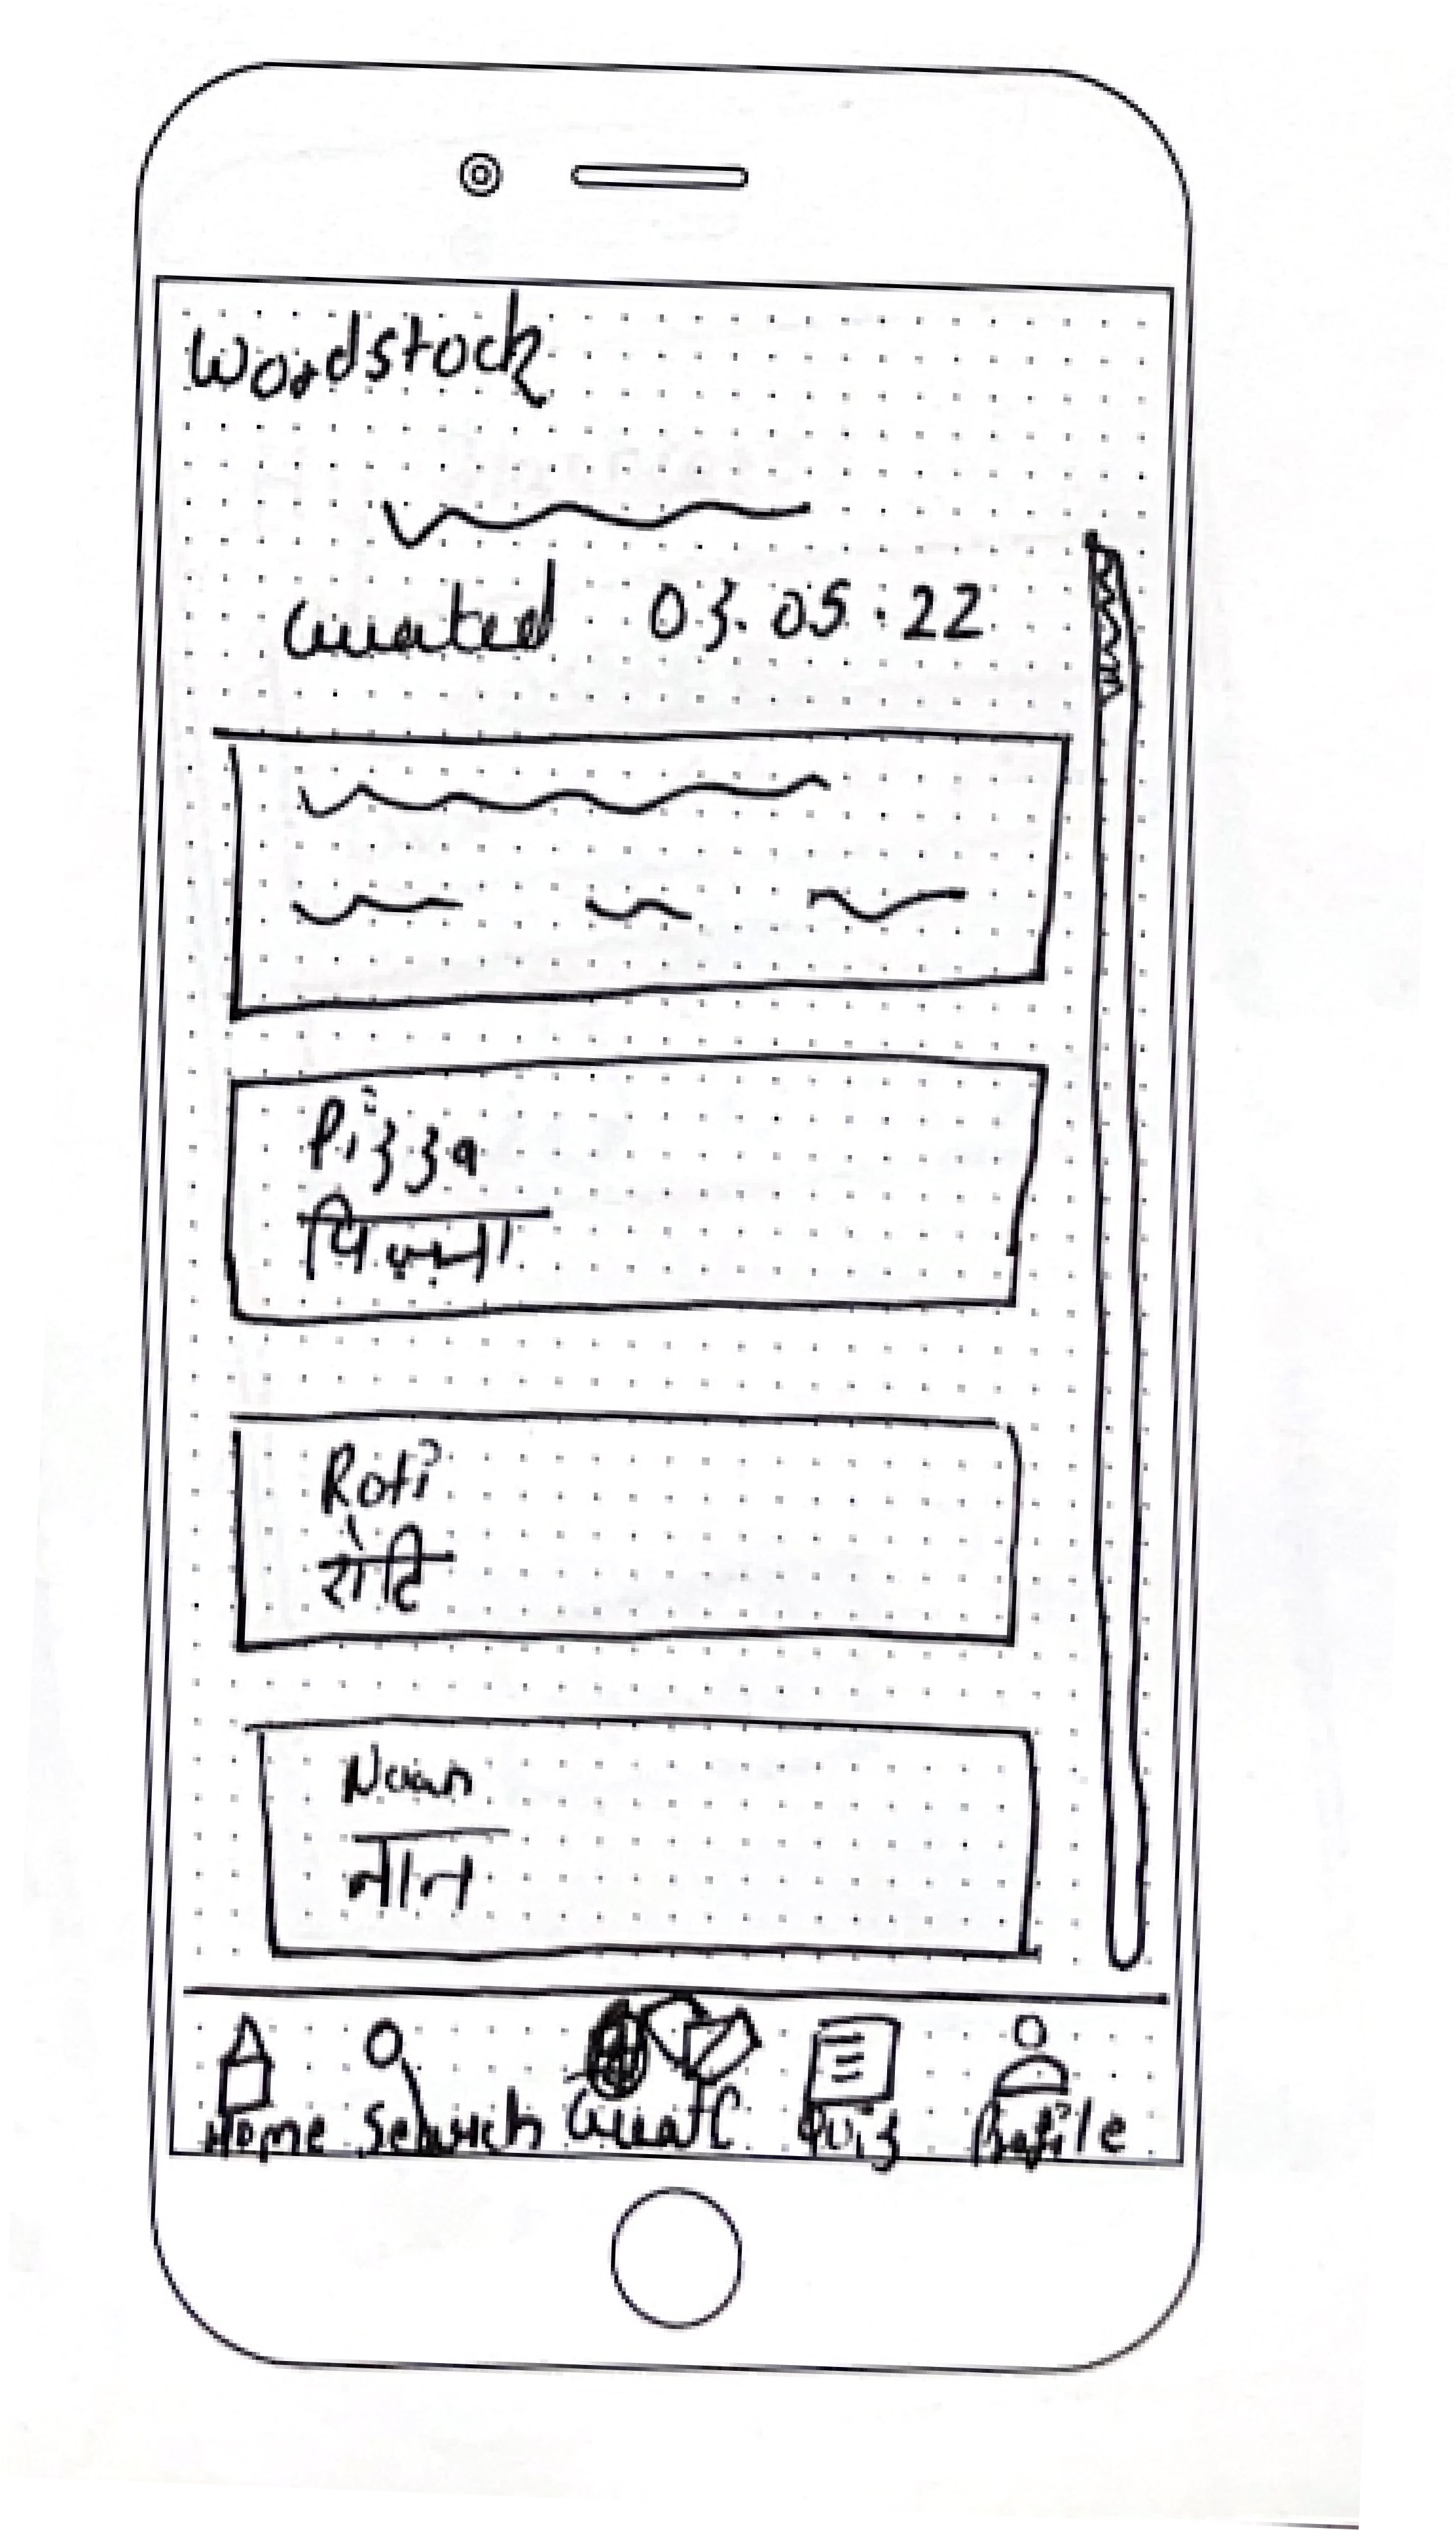 Wordstock
Created 03.05.22
Pizza
पिज्जा
Roti
रोटि
Naan
नान
Home Search Create Quiz Profile